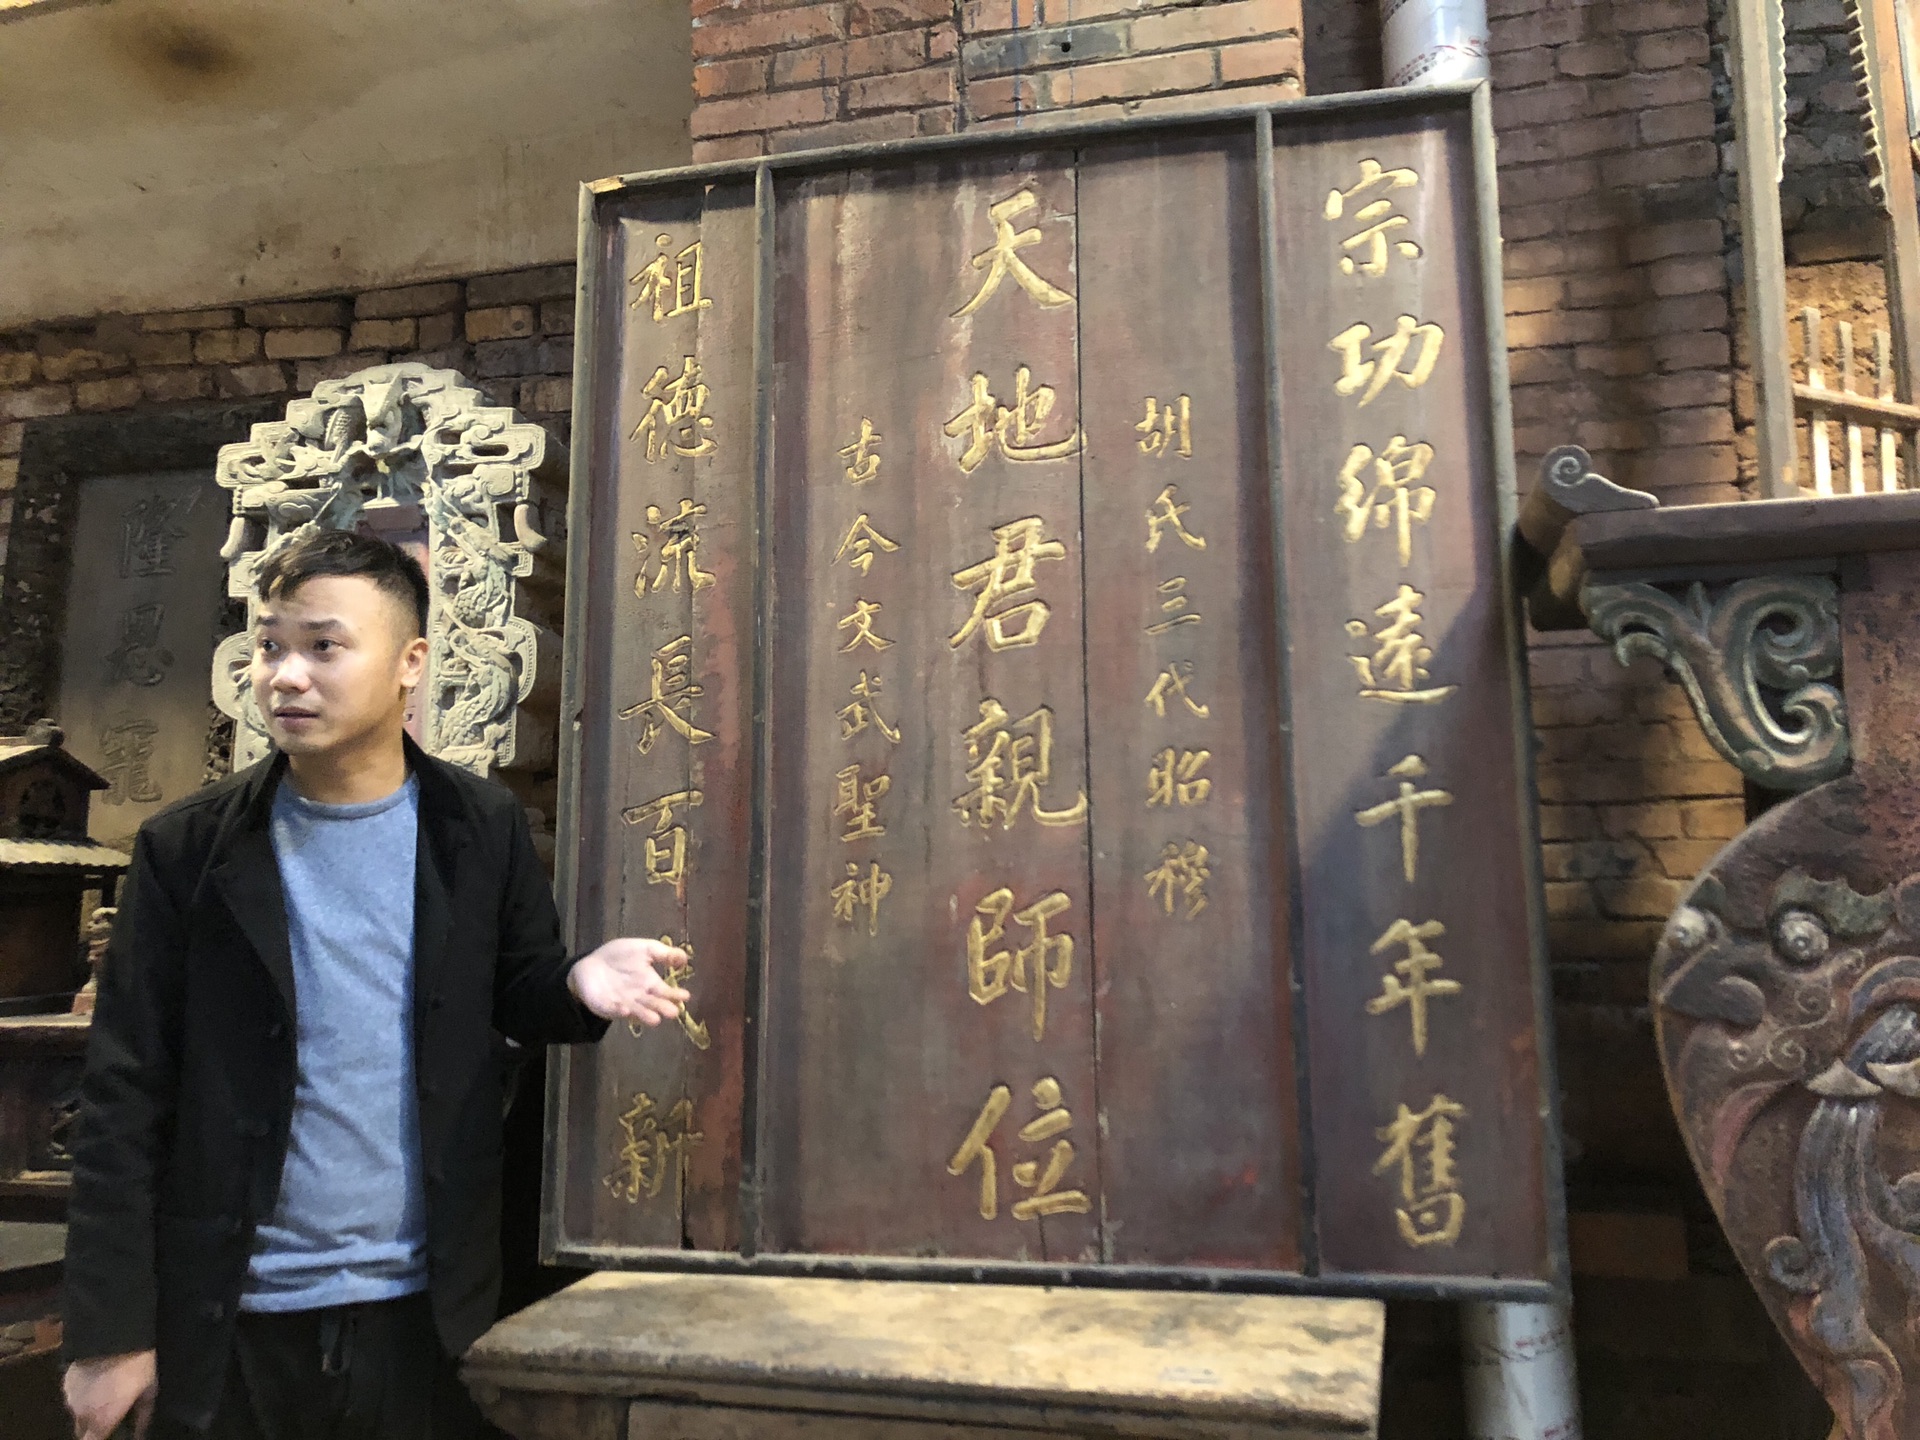 宗功綿遠千年舊
胡氏三代昭穆
天地君親師位
古今文武聖神
祖德流長百代新
隆恩寵